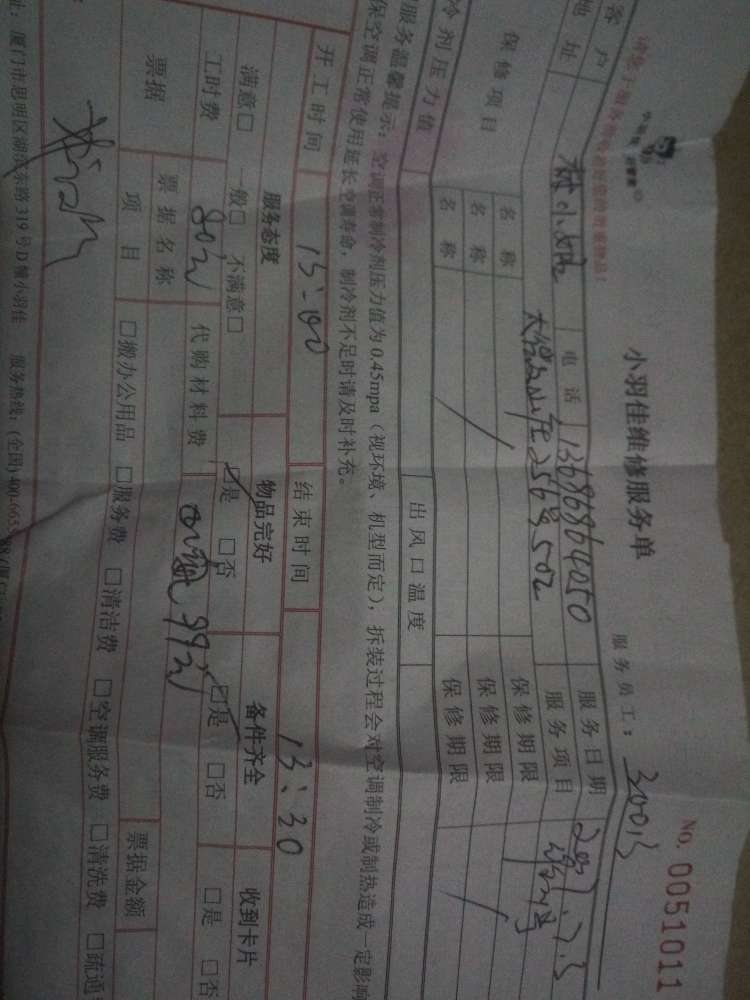 小羽佳维修服务单
NO. 0051011
服务员工：30013
客户 林小姐 电话 13686864050 服务日期
地址 256号502 服务项目
保修项目 名称 保修期限
名称 保修期限
名称 保修期限
冷剂压力值 出风口温度
服务温馨提示：空调正常制冷剂压力值为0.45mpa（视环境、机型而定），拆装过程会对空调制冷或制热造成一定影响
保空调正常使用延长空调寿命，制冷剂不足时请及时补充。
开工时间 15:00 结束时间 15:30
服务态度 物品完好 备件齐全 收到卡片
满意□ 一般□ 不满意□ ☑是 □否 ☑是 □否 □是 □否
工时费 80元 代购材料费 99元
票据 票据名称 票据金额
项目 □搬办公用品 □服务费 □清洁费 □空调服务费 □清洗费 □疏通
址：厦门市思明区湖滨东路319号D幢小羽佳 服务热线：(全国)400-665